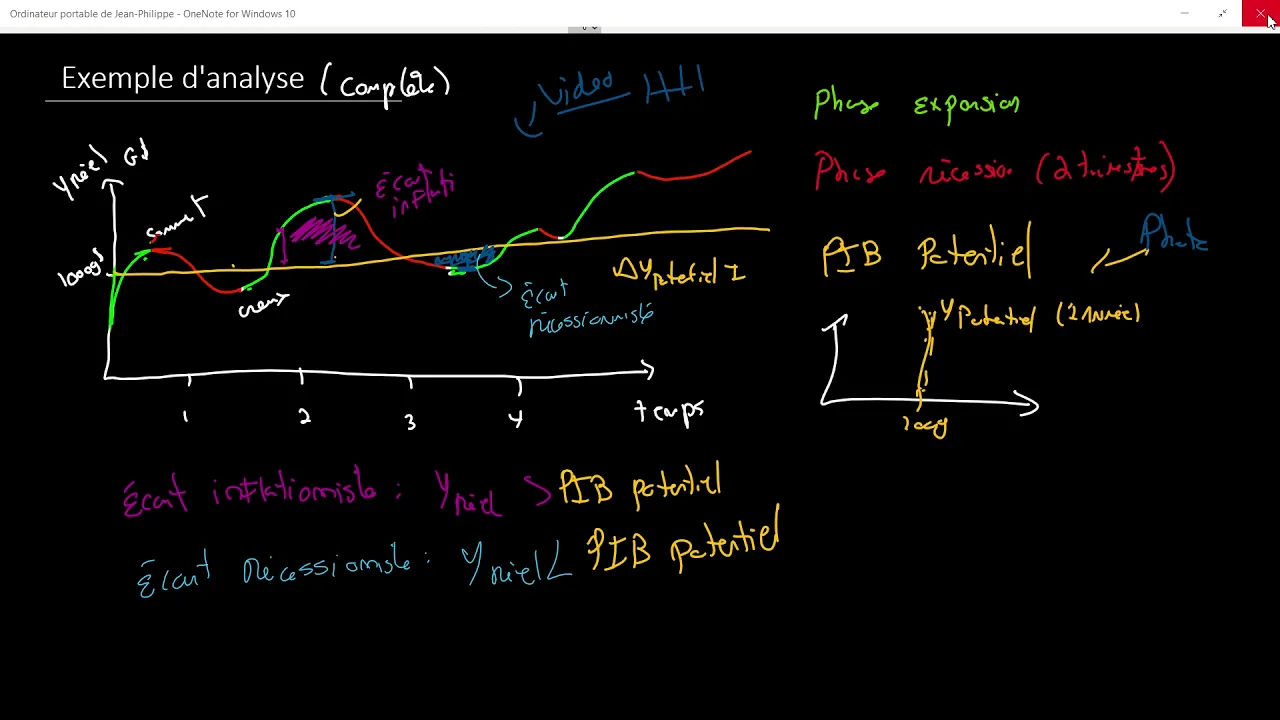 Ordinateur portable de Jean-Philippe - OneNote for Windows 10
Exemple d'analyse (complète)
Vidéo
Phase expansion
Phase récession (2 trimestres)
PIB Potentiel
Y réel G$
sommet
Écart
inflati
1000g$
creux
Écart
récessionniste
Δ Y potentiel I
Y Potentiel (1 année)
1000g
1 2 3 4 temps
Écart inflationniste : Y réel > PIB potentiel
Écart récessionniste : Y réel < PIB potentiel